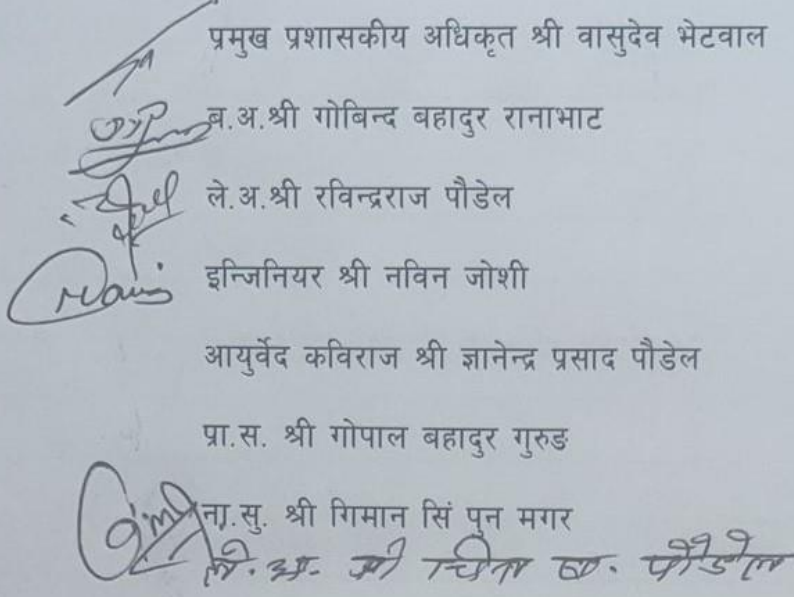 प्रमुख प्रशासकीय अधिकृत श्री वासुदेव भेटवाल
ब.अ.श्री गोबिन्द बहादुर रानाभाट
ले.अ.श्री रविन्द्रराज पौडेल
इन्जिनियर श्री नविन जोशी
आयुर्वेद कविराज श्री ज्ञानेन्द्र प्रसाद पौडेल
प्रा.स. श्री गोपाल बहादुर गुरुङ
ना.सु. श्री गिमान सिं पुन मगर
श्री पौडेल